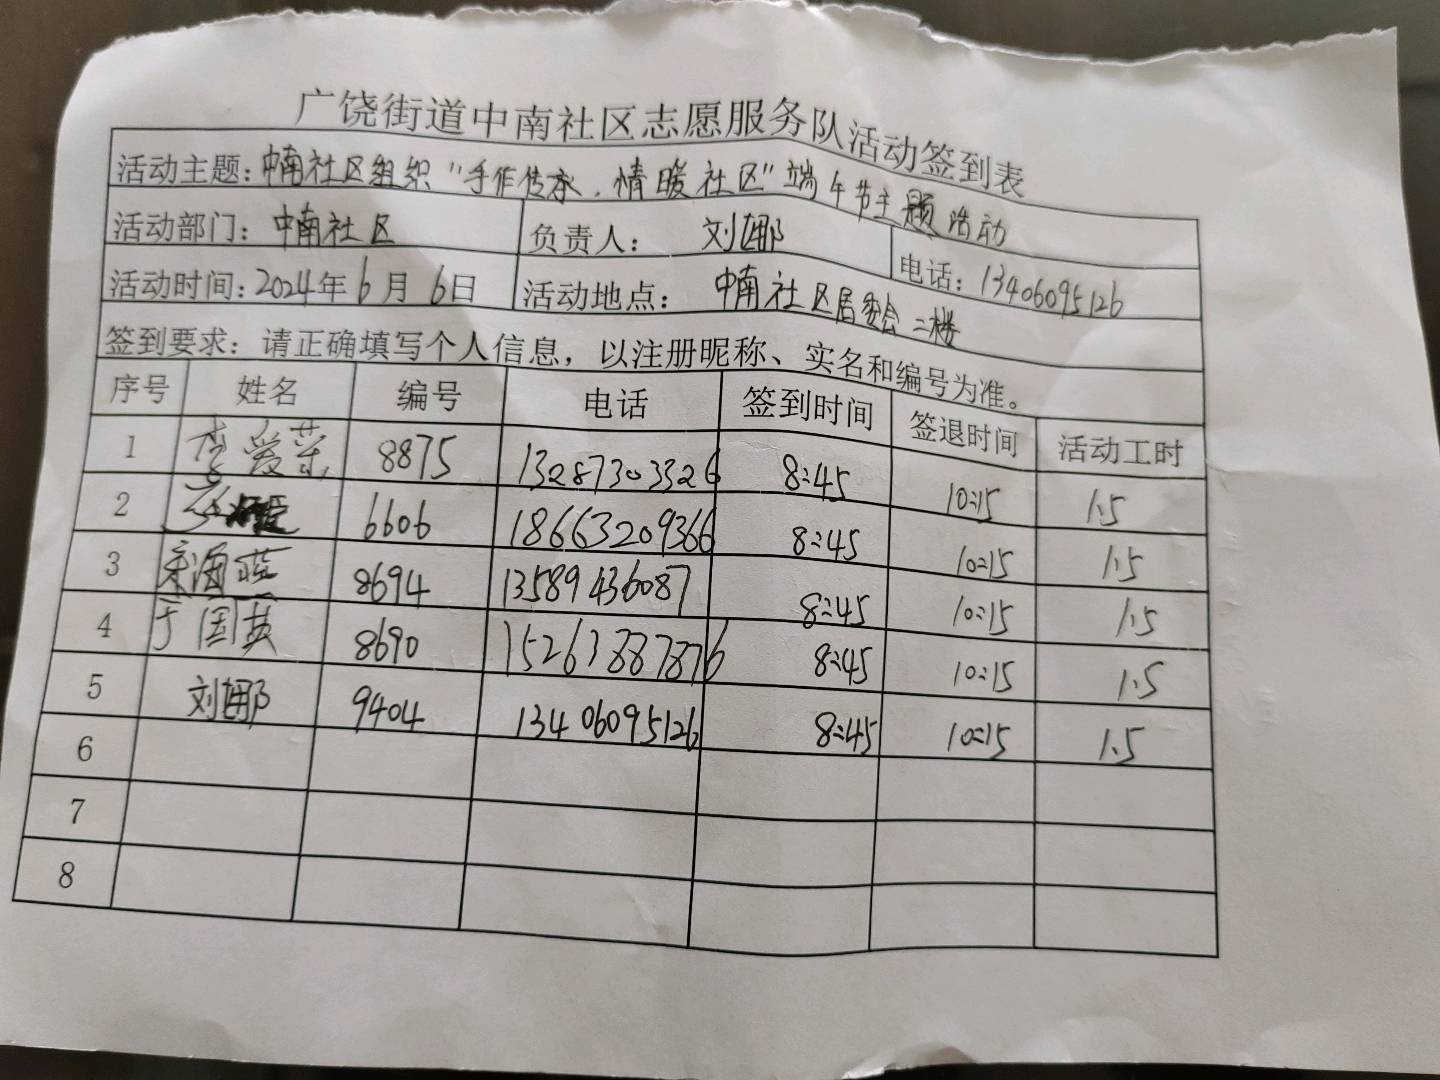 广饶街道中南社区志愿服务队活动签到表
活动主题：中南社区组织"手作传承，情暖社区"端午节主题活动
活动部门：中南社区 负责人： 刘娜 电话：13406095126
活动时间：2024年6月6日 活动地点： 中南社区居委会二楼
签到要求：请正确填写个人信息，以注册昵称、实名和编号为准。
序号 姓名 编号 电话 签到时间 签退时间 活动工时
1 李爱菜 8875 13287303326 8:45 10:15 1.5
2 6606 18663209366 8:45 10:15 1.5
3 宋海燕 8694 13589436087 8:45 10:15 1.5
4 于国英 8690 15263887876 8:45 10:15 1.5
5 刘娜 9404 13406095126 8:45 10:15 1.5
6
7
8